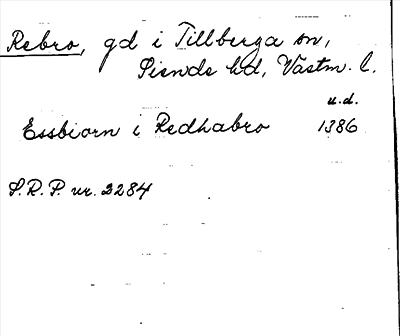 Rebro, gd i Tillberga sn,
Siende hd, Västm. l.
u.d.
Essbiorn i Redhabro 1386
S.R.P. nr. 2284